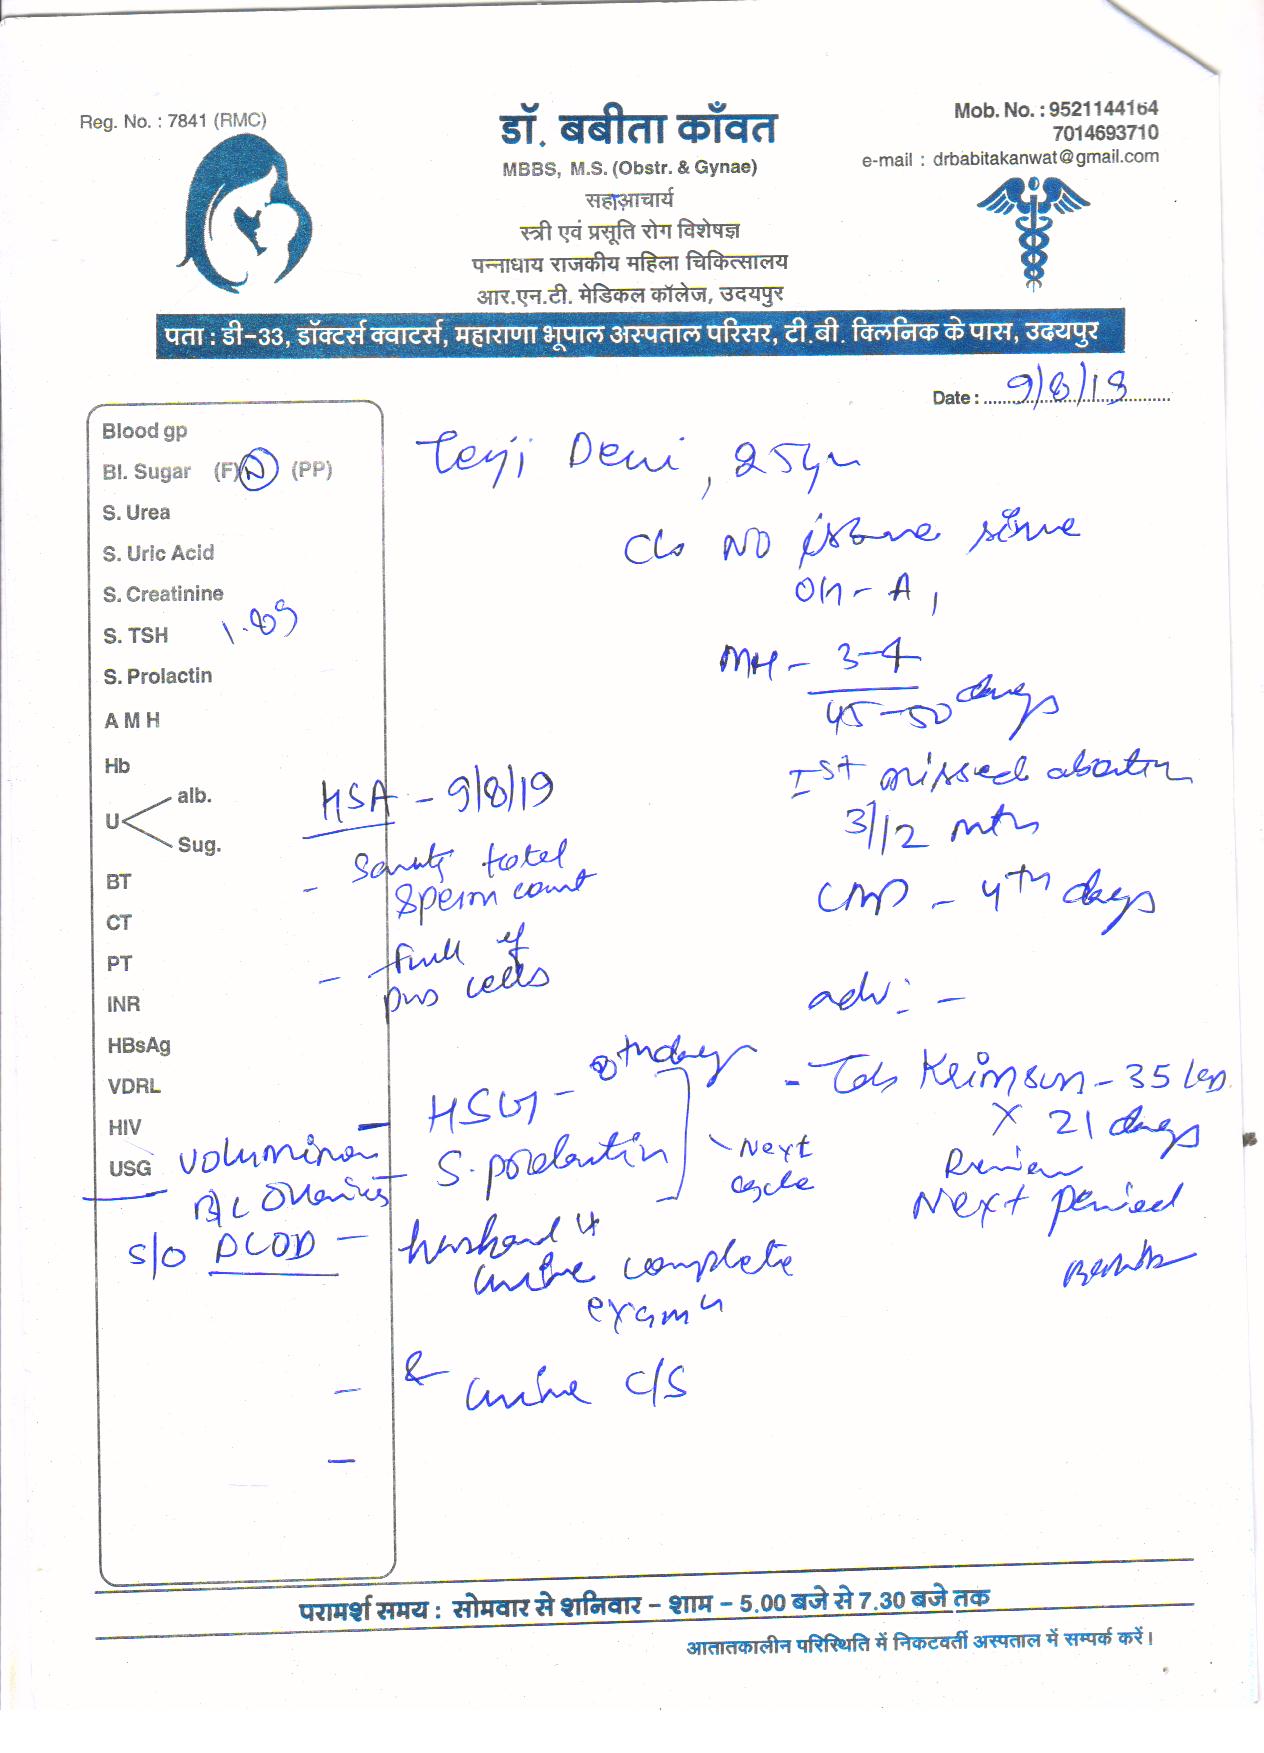 Reg. No. : 7841 (RMC)
डॉ. बबीता काँवत
MBBS, M.S. (Obstr. & Gynae)
सहआचार्य
स्त्री एवं प्रसूति रोग विशेषज्ञ
पन्नाधाय राजकीय महिला चिकित्सालय
आर.एन.टी. मेडिकल कॉलेज, उदयपुर
Mob. No. : 9521144164
7014693710
e-mail : drbabitakanwat@gmail.com
पता : डी-33, डॉक्टर्स क्वाटर्स, महाराणा भूपाल अस्पताल परिसर, टी.बी. क्लिनिक के पास, उदयपुर
Date : 9/8/19
Blood gp
Bl. Sugar (F) N (PP)
S. Urea
S. Uric Acid
S. Creatinine
S. TSH 1.89
S. Prolactin
A M H
Hb
U alb.
Sug.
BT
CT
PT
INR
HBsAg
VDRL
HIV
USG voluminous
B/L ovaries
S/O PCOD
Devi, 25yr
C/o NO issue since
O/H - A1
MH - 3-4
45-50 days
Ist missed abortion
3/12 mth
LMP - 4th days
HSA - 9/8/19
- Scanty total
sperm count
- full of
pus cells
adv: -
- Tab Krimson - 35
X 21 days
Review
Next period
- HSG - 8th day
- S. prolactin
Next
cycle
- husband
urine complete
exam
- & urine C/S
-
परामर्श समय : सोमवार से शनिवार - शाम - 5.00 बजे से 7.30 बजे तक
आतातकालीन परिस्थिति में निकटवर्ती अस्पताल में सम्पर्क करें।